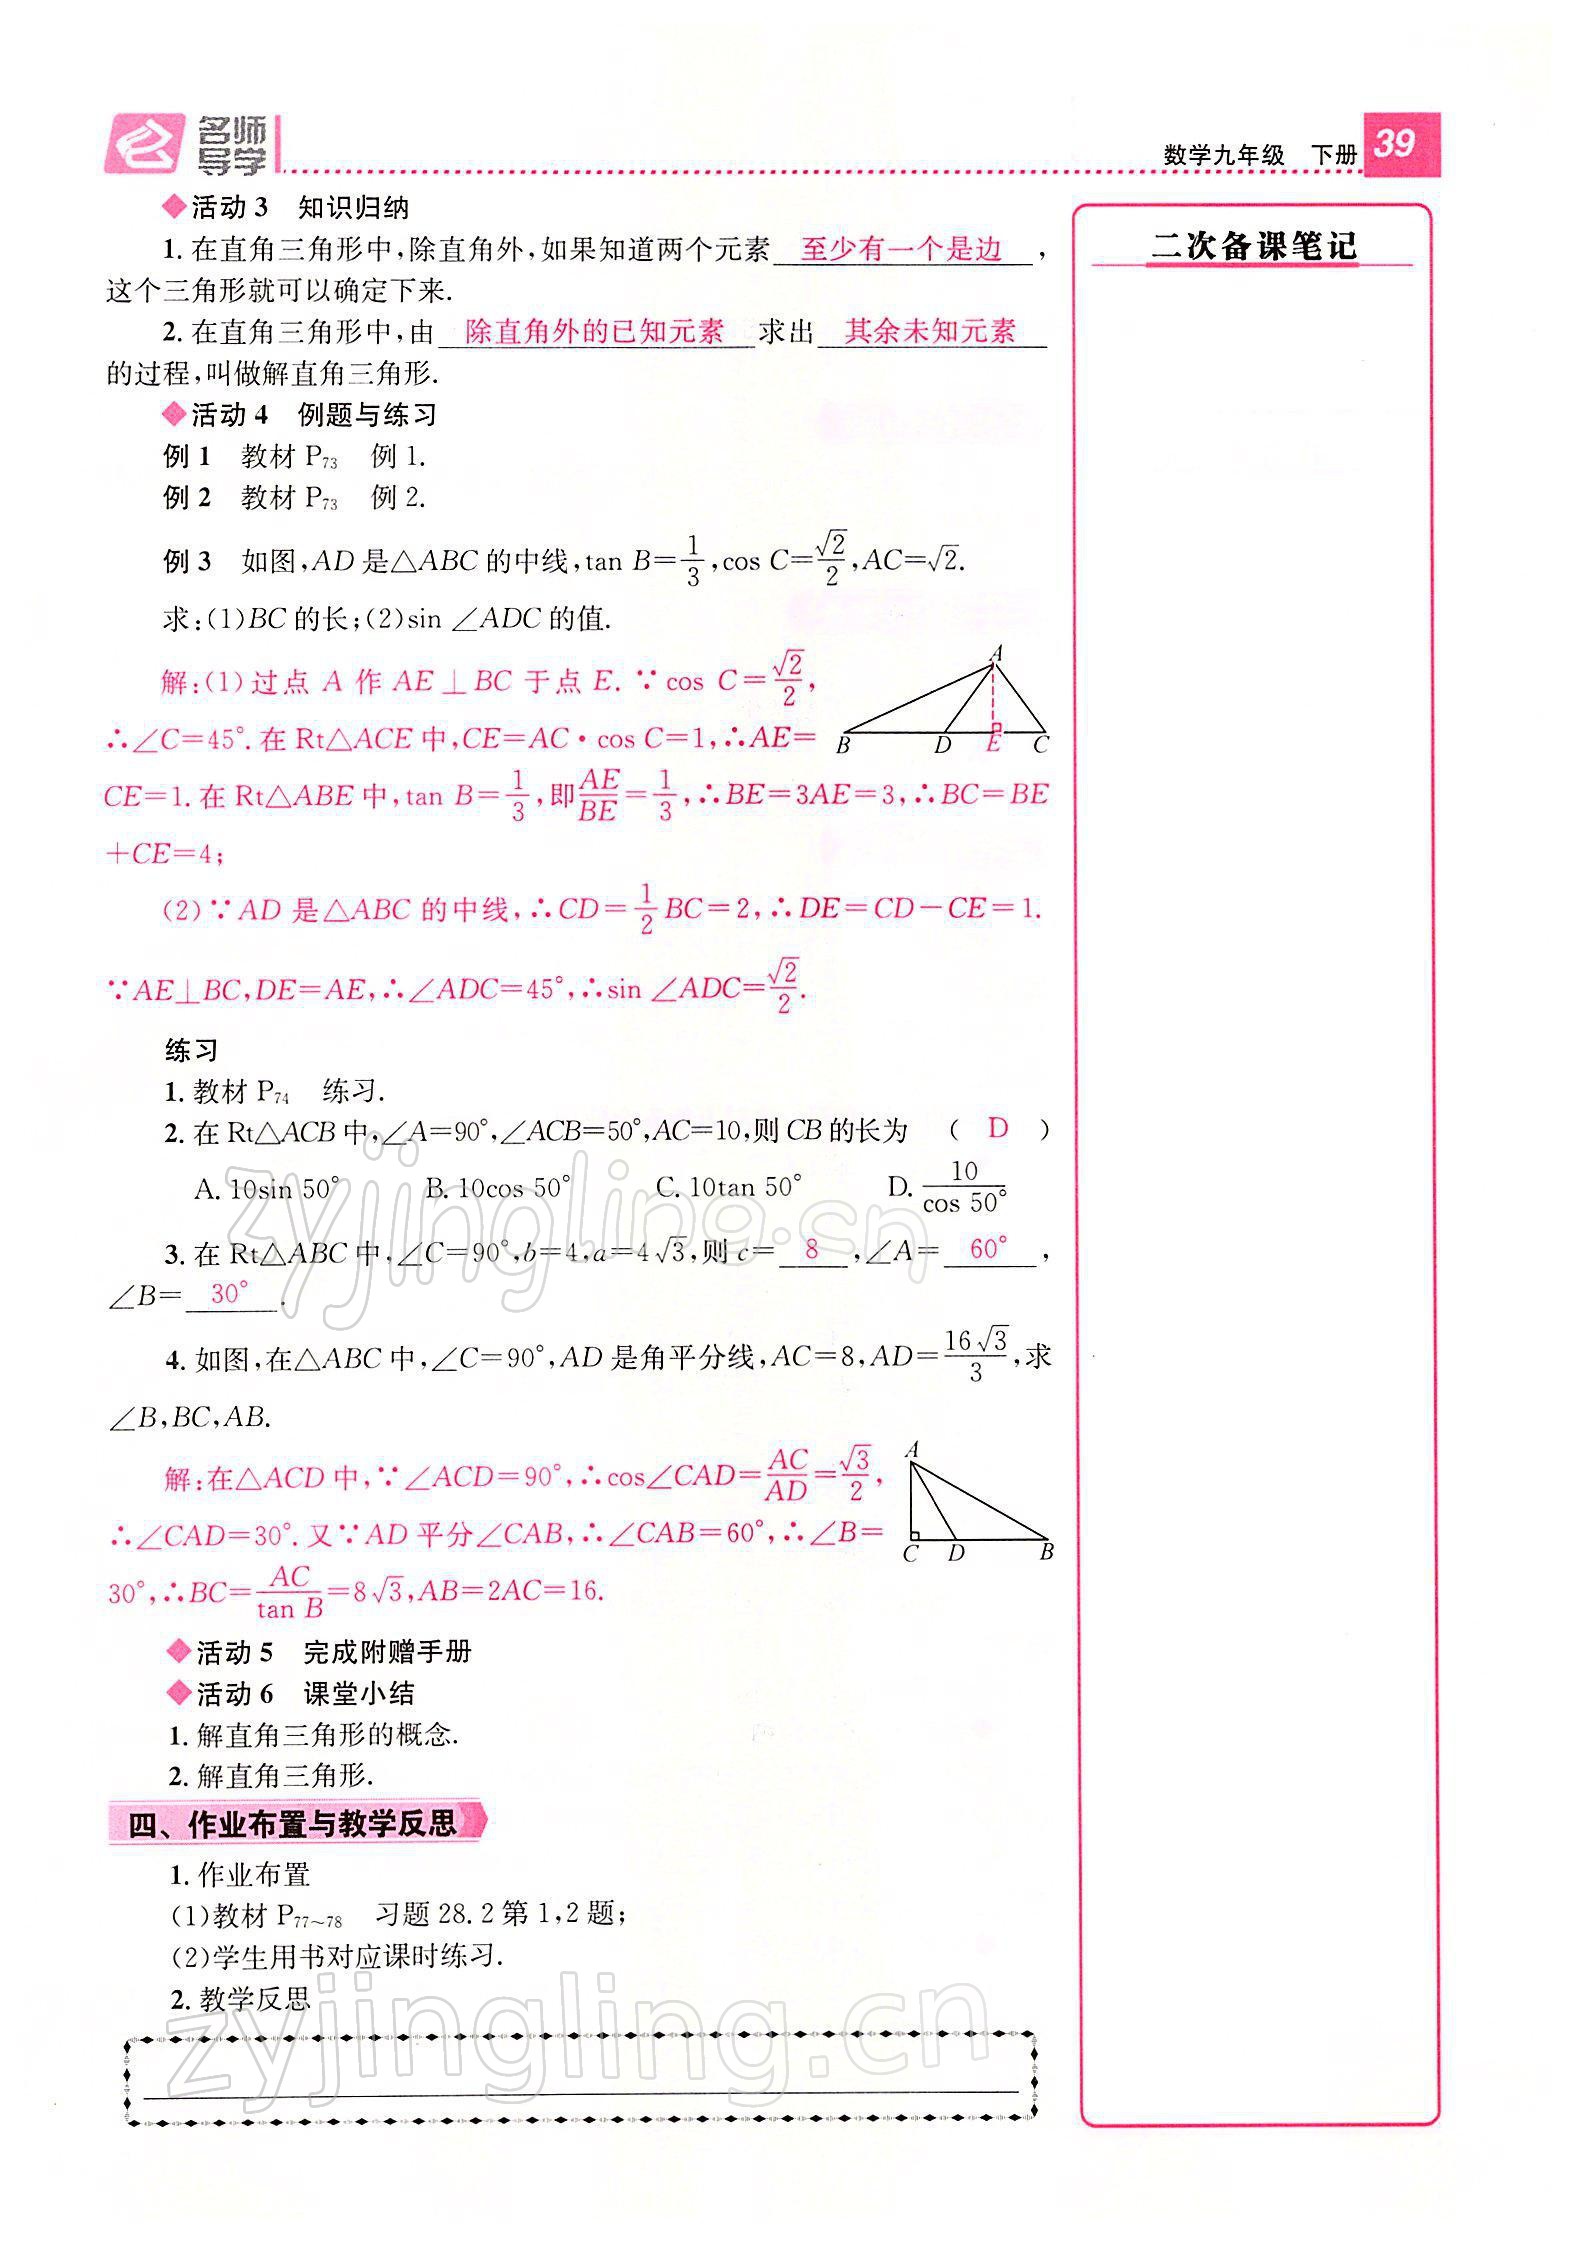 名师
导学
数学九年级 下册 39
◆活动3 知识归纳
1. 在直角三角形中,除直角外,如果知道两个元素 至少有一个是边 ,
这个三角形就可以确定下来.
2. 在直角三角形中,由 除直角外的已知元素 求出 其余未知元素
的过程,叫做解直角三角形.
◆活动4 例题与练习
例1 教材 P₇₃ 例1.
例2 教材 P₇₃ 例2.
例3 如图,AD是△ABC的中线,tan B=1/3,cos C=√2/2,AC=√2.
求:(1)BC的长;(2)sin ∠ADC的值.
解:(1)过点 A 作 AE⊥BC 于点 E. ∵cos C=√2/2,
∴∠C=45°. 在 Rt△ACE 中,CE=AC·cos C=1,∴AE=
CE=1. 在 Rt△ABE 中,tan B=1/3,即AE/BE=1/3,∴BE=3AE=3,∴BC=BE
+CE=4;
(2)∵AD 是△ABC 的中线,∴CD=1/2BC=2,∴DE=CD-CE=1.
∵AE⊥BC,DE=AE,∴∠ADC=45°,∴sin ∠ADC=√2/2.
A
B D E C
练习
1. 教材 P₇₄ 练习.
2. 在 Rt△ACB 中,∠A=90°,∠ACB=50°,AC=10,则 CB 的长为 ( D )
A. 10sin 50° B. 10cos 50° C. 10tan 50° D. 10/cos 50°
3. 在 Rt△ABC 中,∠C=90°,b=4,a=4√3,则 c= 8 ,∠A= 60° ,
∠B= 30° .
4. 如图,在△ABC 中,∠C=90°,AD 是角平分线,AC=8,AD=16√3/3,求
∠B,BC,AB.
解:在△ACD 中,∵∠ACD=90°,∴cos∠CAD=AC/AD=√3/2,
∴∠CAD=30°. 又∵AD 平分∠CAB,∴∠CAB=60°,∴∠B=
30°,∴BC=AC/tan B=8√3,AB=2AC=16.
A
C D B
◆活动5 完成附赠手册
◆活动6 课堂小结
1. 解直角三角形的概念.
2. 解直角三角形.
四、作业布置与教学反思
1. 作业布置
(1)教材 P₇₇~₇₈ 习题 28.2 第 1,2 题;
(2)学生用书对应课时练习.
2. 教学反思
二次备课笔记
zyjingling.cn
zyjingling.cn